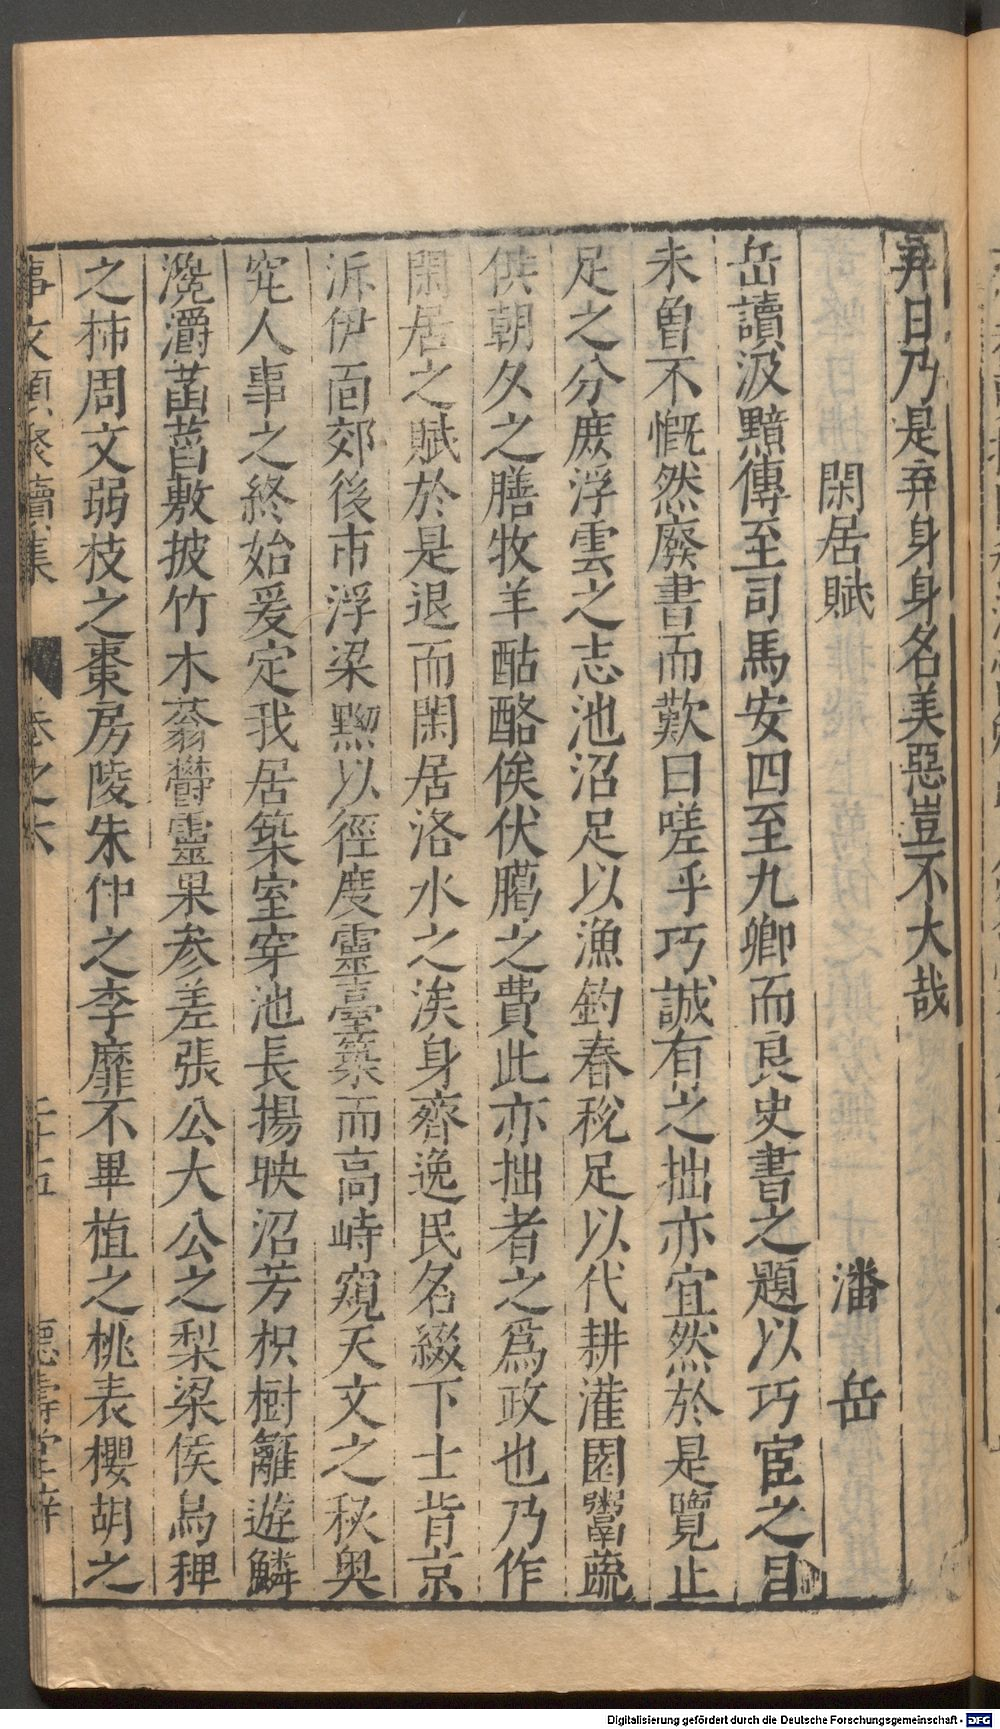 弃日乃是弃身身名美惡豈不大哉
閑居賦 潘岳
岳讀汲黯傳至司馬安四至九卿而良史書之題以巧宦之目
未曾不慨然廢書而歎曰嗟乎巧誠有之拙亦宜然於是覽止
足之分庶浮雲之志池沼足以漁釣春稅足以代耕灌園鬻蔬
供朝夕之膳牧羊酤酪俟伏臈之費此亦拙者之爲政也乃作
閑居之賦於是退而閑居洛水之涘身齊逸民名綴下士背京
泝伊面郊後市浮梁黝以徑度靈臺築而高峙窺天文之秘奥
究人事之終始爰定我居築室穿池長揚映沼芳枳樹籬遊鱗
瀺灂菡萏敷披竹木蓊欝靈果參差張公大公之梨梁侯烏椑
之柿周文弱枝之棗房陵朱仲之李靡不畢植之桃表櫻胡之
事文類聚續集 卷之六 二十五 德壽堂梓
Digitalisierung gefördert durch die Deutsche Forschungsgemeinschaft - DFG